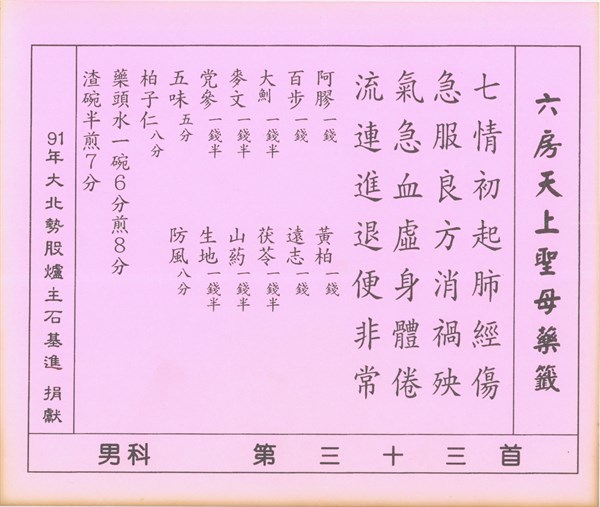 六房天上聖母藥籤
七情初起肺經傷
急服良方消禍殃
氣急血虛身體倦
流連進退便非常
阿膠一錢 黃柏一錢
百步一錢 遠志一錢
大魝一錢半 茯苓一錢半
麥文一錢半 山葯一錢半
党參一錢半 生地一錢半
五味五分 防風八分
柏子仁八分
藥頭水一碗6分煎8分
渣碗半煎7分
91年大北勢股爐主石基進 捐獻
男科 第三十三首